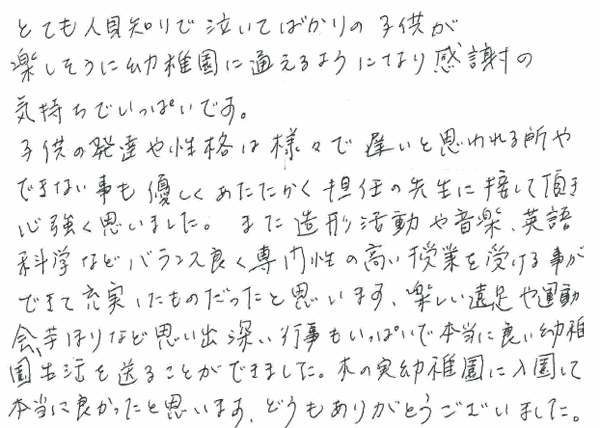 とても人見知りで泣いてばかりの子供が
楽しそうに幼稚園に通えるようになり感謝の
気持ちでいっぱいです。
子供の発達や性格は様々で遅いと思われる所や
できない事も優しくあたたかく担任の先生に接して頂き
心強く思いました。また造形活動や音楽、英語
科学などバランス良く専門性の高い授業を受ける事が
できて充実したものだったと思います、楽しい遠足や運動
会、芋ほりなど思い出深い行事もいっぱいで本当に良い幼稚
園生活を送ることができました。木の実幼稚園に入園して
本当に良かったと思います、どうもありがとうございました。